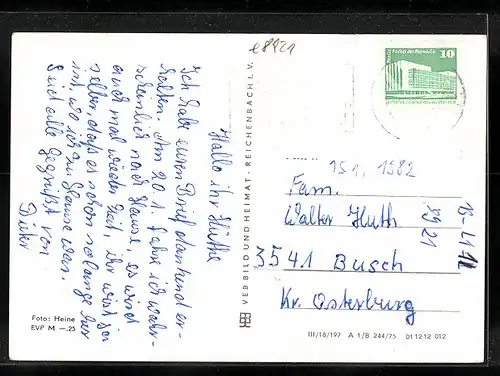 e8421
Hallo ihr Huths
Ich habe euren Brief dankend er-
halten. Am 20.1. fahre ich wahr-
scheinlich nach Hause, es wird
auch mal wieder Zeit, ihr wißt ja
selber, daß es schon so lange her
ist, wo ich zu Hause war.
Seid alle gegrüßt von
Dieter
Foto: Heine
EVP M —.25
VEB BILD UND HEIMAT · REICHENBACH I. V.
Palast der Republik
10
15.1.1982
Fam.
Walter Huth
3541 Busch
Kr. Osterburg
III/18/197 A 1/B 244/75 01 12 12 012